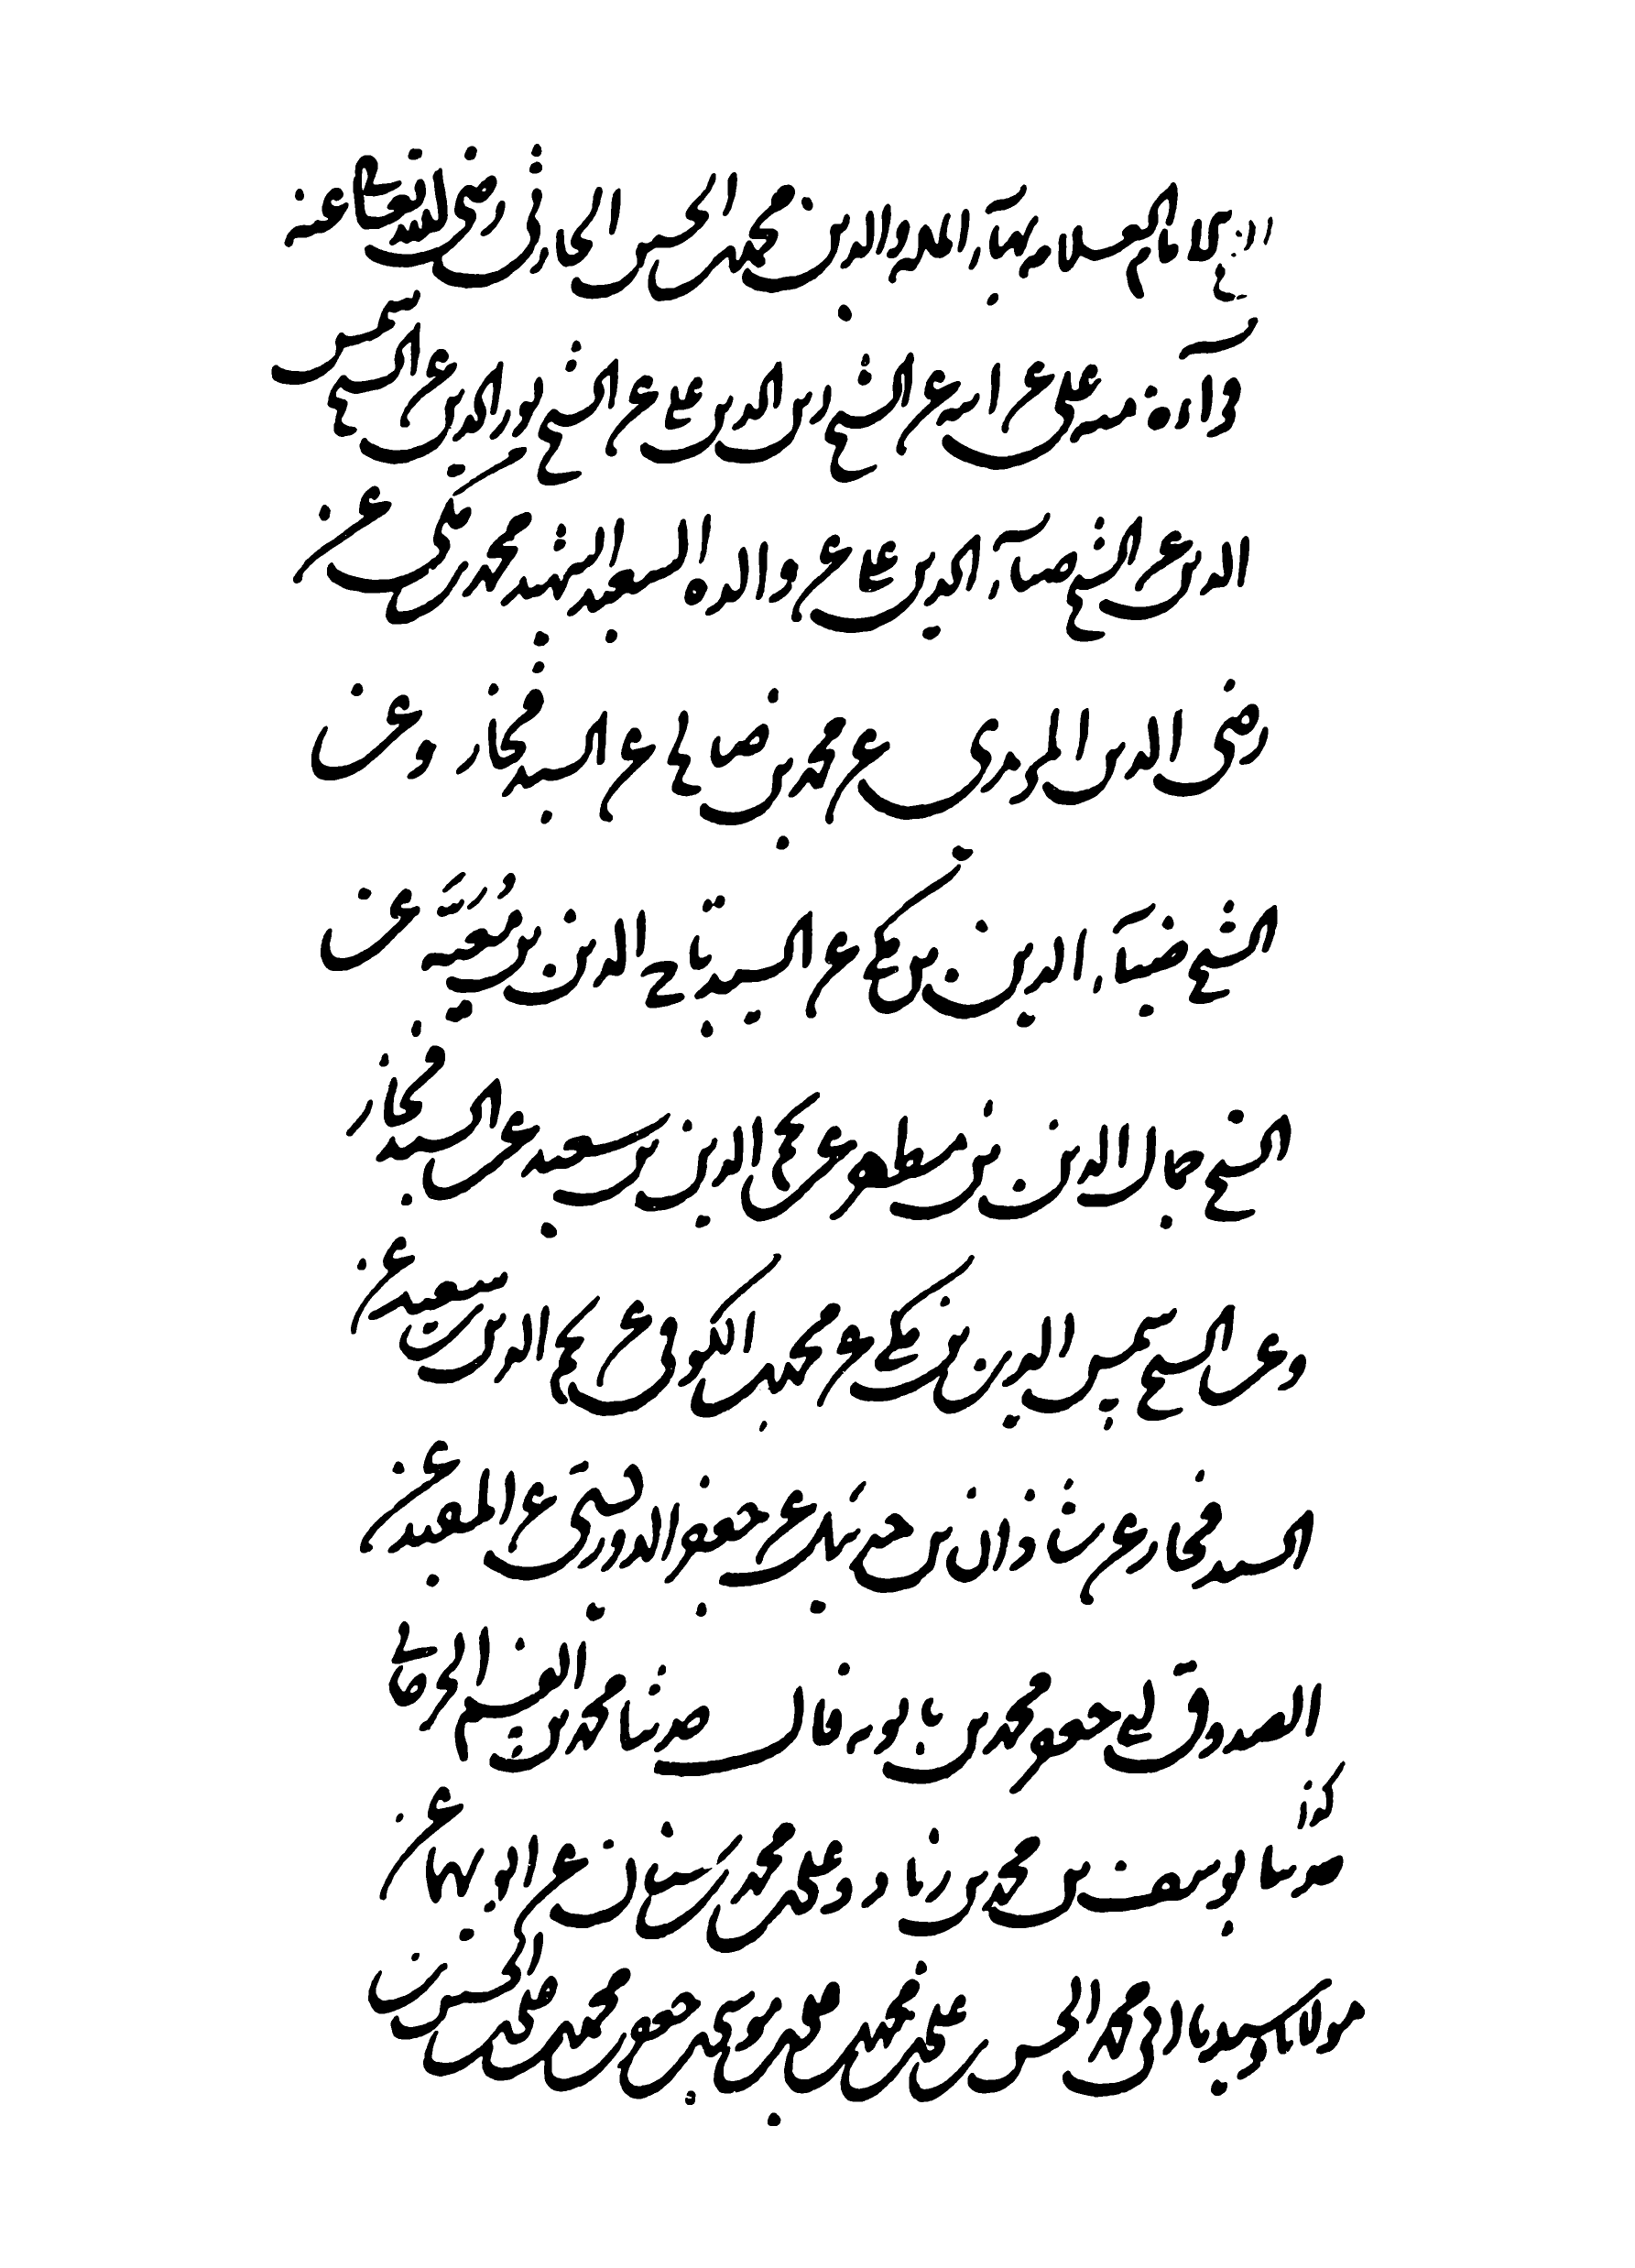 الامام العلامه بهاء المله والدين محمد بن الحسن الحارثى رضى الله تعالى عنه
قراءة منه على عن ابيه عن الشيخ زين الدين على عن الشيخ نور الدين عن الشيخ شمس
الدين عن الشيخ ضياء الدين على عن والده السعيد الشهيد محمد بن مكى عن
رضى الدين المزيدى عن محمد بن صالح عن السيد فخار وعن
الشيخ ضياء الدين بن مكى عن السيد تاج الدين بن مُعَيَّه عن
الشيخ جمال الدين بن مطهر عن نجم الدين بن سعيد عن السيد فخار
وعن الشيخ شمس الدين بن مكى عن محمد بن الكوفى عن نجم الدين بن سعيد عن
السيد فخار عن شاذان بن جبرئيل عن جعفر الدوريستى عن المفيد عن
الصدوق ابى جعفر محمد بن بابويه قال حدثنا محمد بن القسم الجرجانى
كذا
حدثنا يوسف بن محمد بن زياد وعلى بن محمد بن سنان عن ابويهما عن
مولانا وسيدنا ابى محمد الحسن بن على بن محمد بن على بن موسى بن جعفر بن محمد بن على بن الحسين بن